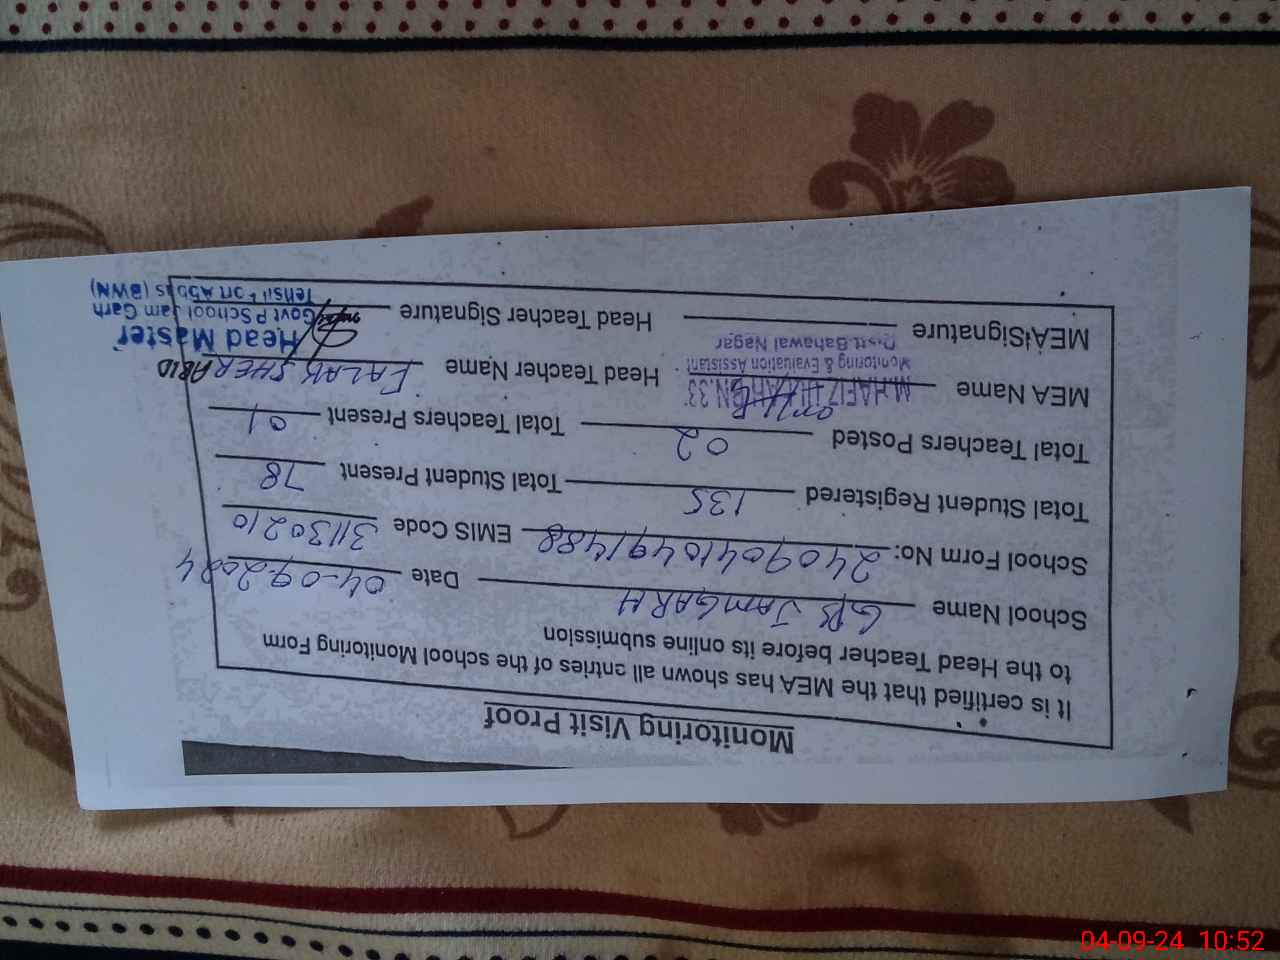 Monitoring Visit Proof
It is certified that the MEA has shown all entries of the school Monitoring Form
to the Head Teacher before its online submission
School Name GPS JAMGARH Date 04-09-2024
School Form No: 24090410491488 EMIS Code 31130210
Total Student Registered 135 Total Student Present 78
Total Teachers Posted 02 Total Teachers Present 01
MEA Name M.HAFIZ BN.33 Head Teacher Name FALAK SHER ABID
Monitoring & Evaluation Assistant
Distt. Bahawal Nagar
MEA Signature Head Teacher Signature
Head Master
Govt P School Jam Garh
Tehsil Fort Abbas (BWN)
04-09-24 10:52